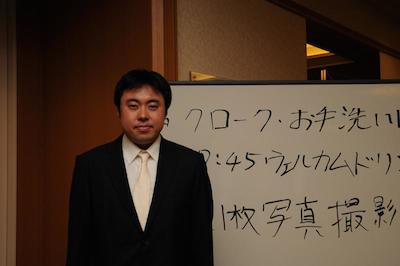 クローク・お手洗い
:45 ウェルカムドリン
1枚写真撮影